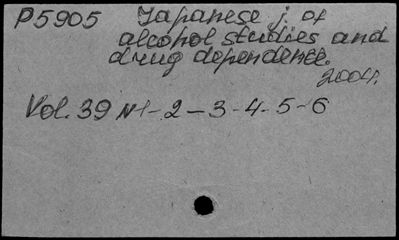 P5905 Japanese j. of
alcohol studies and
drug dependence.
2004.
Vol. 39 N1-2-3-4-5-6